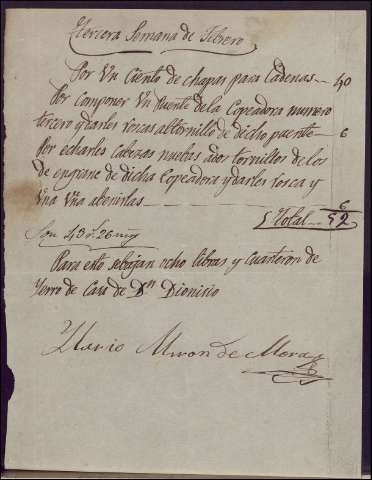 Hercera Semana de Febrero
Por Un Ciento de chapas para Cadenas — 40
Por Componer Un Puente de la Copeadora numero
tercero y darles roscas al tornillo de dicho puente — 6
Por echarles Cabezas nuebas ados tornillos de los
de engrane de dicha Copeadora y darles rosca y
Una Uña atenirlas — 6
Total — 52
Son 43 26
Para esto sebajan ocho libras y cuarteron de
Yerro de Casa de Dn Dionisio
Ylario Miron de Mora